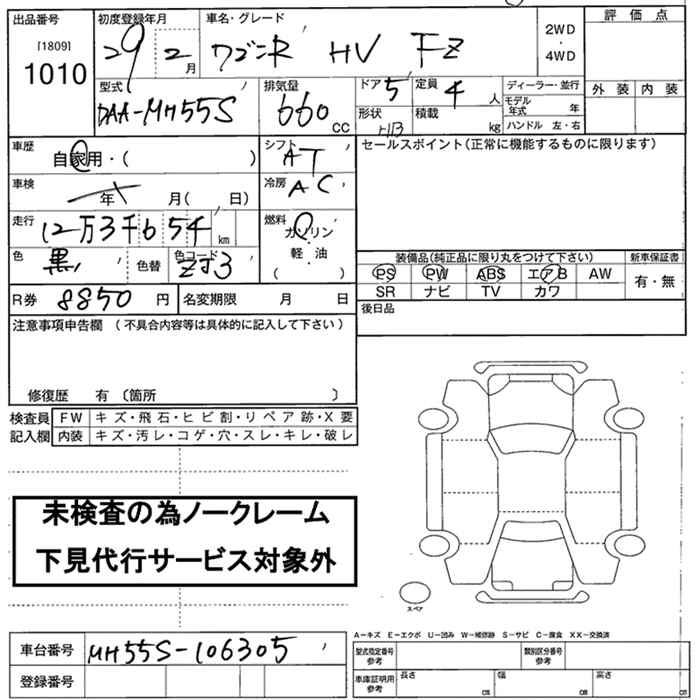 出品番号
[1809]
1010
初度登録年月
29 2 月
車名・グレード
ワゴンR HV FZ
2WD
・
4WD
評価点
外装 内装
型式
DAA-MH55S
排気量
660 CC
ドア 5
形状 HB
定員 4 人
積載 kg
ディーラー・並行
モデル年式 年
ハンドル 左・右
車歴
自家用・( )
シフト
AT
セールスポイント(正常に機能するものに限ります)
車検
年 月( 日)
冷房
AC
走行
12万3千654 km
燃料
ガソリン
軽・油
( )
色
黒
色替
色コード
ZJ3
装備品(純正品に限り丸をつけて下さい)
新車保証書
PS PW ABS エアB AW
SR ナビ TV カワ
有・無
R券 8850 円
名変期限 月 日
後日品
注意事項申告欄 (不具合内容等は具体的に記入して下さい)
修復歴 有〔箇所 〕
検査員記入欄
FW キズ・飛石・ヒビ割・リペア跡・X要
内装 キズ・汚レ・コゲ・穴・スレ・キレ・破レ
未検査の為ノークレーム
下見代行サービス対象外
スペア
A－キズ E－エクボ U－凹み W－補修跡 S－サビ C－腐食 XX－交換済
車台番号 MH55S-106305
登録番号
型式指定番号
参考
類別区分番号
参考
車庫証明用
参考
長さ cm
幅 cm
高さ cm